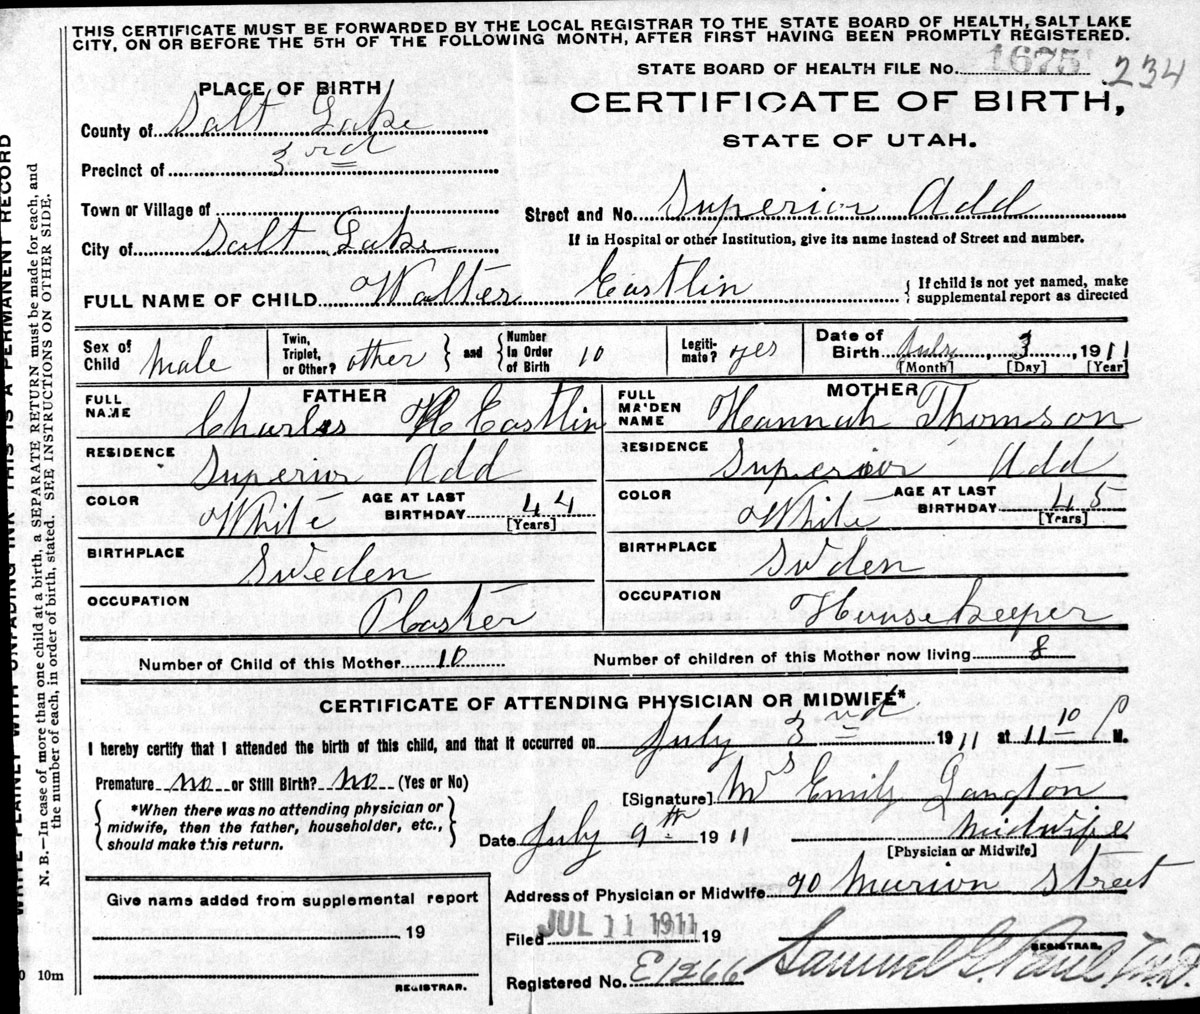 THIS CERTIFICATE MUST BE FORWARDED BY THE LOCAL REGISTRAR TO THE STATE BOARD OF HEALTH, SALT LAKE
CITY, ON OR BEFORE THE 5TH OF THE FOLLOWING MONTH, AFTER FIRST HAVING BEEN PROMPTLY REGISTERED.
STATE BOARD OF HEALTH FILE No. 1675 234
PLACE OF BIRTH
CERTIFICATE OF BIRTH,
STATE OF UTAH.
County of Salt Lake
Precinct of 3rd
Town or Village of
Street and No. Superior Add
City of Salt Lake
If in Hospital or other Institution, give its name instead of Street and number.
FULL NAME OF CHILD Walter Eastlin
{ If child is not yet named, make
supplemental report as directed
Sex of Child Male
Twin, Triplet, or Other? other } and { Number in Order of Birth 10
Legitimate? yes
Date of Birth July, 3, 1911
[Month] [Day] [Year]
FATHER
FULL NAME Charles H Eastlin
RESIDENCE Superior Add
COLOR White
AGE AT LAST BIRTHDAY 44
[Years]
BIRTHPLACE Sweden
OCCUPATION Plaster
MOTHER
FULL MAIDEN NAME Hannah Thomson
RESIDENCE Superior Add
COLOR White
AGE AT LAST BIRTHDAY 45
[Years]
BIRTHPLACE Swden
OCCUPATION House keeper
Number of Child of this Mother 10
Number of children of this Mother now living 8
CERTIFICATE OF ATTENDING PHYSICIAN OR MIDWIFE*
I hereby certify that I attended the birth of this child, and that it occurred on July 3nd 1911 at 11 10 P M.
Premature no or Still Birth? No (Yes or No)
{ *When there was no attending physician or
midwife, then the father, householder, etc.,
should make this return. }
[Signature] Mrs Emily Langton
Date July 9th 1911
Midwife
[Physician or Midwife]
Address of Physician or Midwife 90 Marion Street
Give name added from supplemental report
19
REGISTRAR.
Filed JUL 11 1911 19
REGISTRAR.
Registered No. E1266
Samuel G. Paul, M.D.
WRITE PLAINLY WITH UNFADING INK THIS IS A PERMANENT RECORD
N. B.—In case of more than one child at a birth, a SEPARATE RETURN must be made for each, and
the number of each, in order of birth, stated. SEE INSTRUCTIONS ON OTHER SIDE.
10m